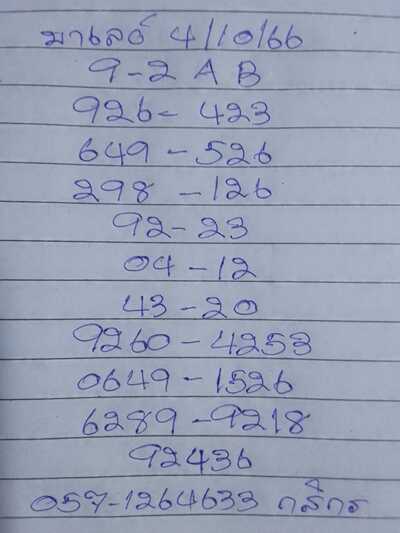 มาเลย์ 4/10/66
9-2 A B
926- 423
649 - 526
298 - 126
92 - 23
04 - 12
43 - 20
9260 - 4253
0649 - 1526
6289 - 9218
92436
057-1264633 กสิกร